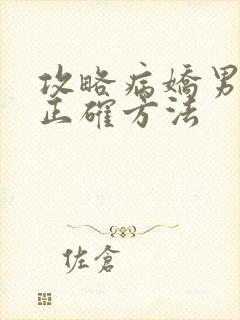 攻略病嬌男
正確方法
佐倉